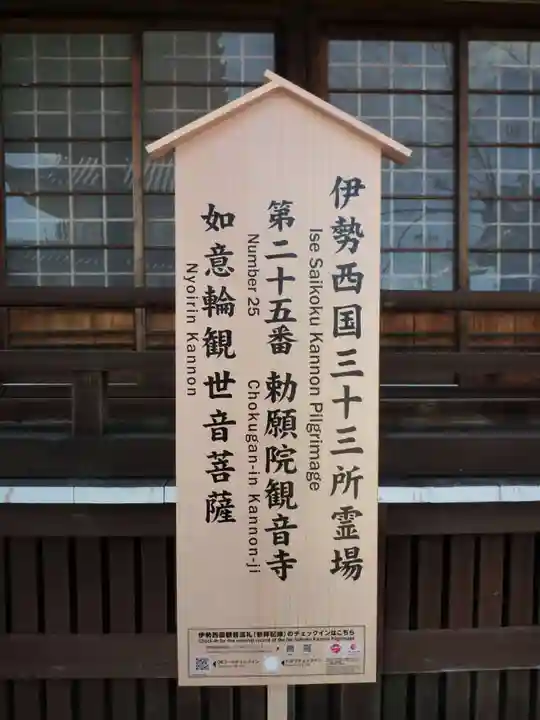 伊勢西国三十三所霊場
Ise Saikoku Kannon Pilgrimage
第二十五番 勅願院観音寺
Number 25 Chokugan-in Kannon-ji
如意輪観世音菩薩
Nyoirin Kannon
伊勢西国観音巡礼(参拝記録)のチェックインはこちら
Check-in for the worship record of the Ise Saikoku Kannon Pilgrimage